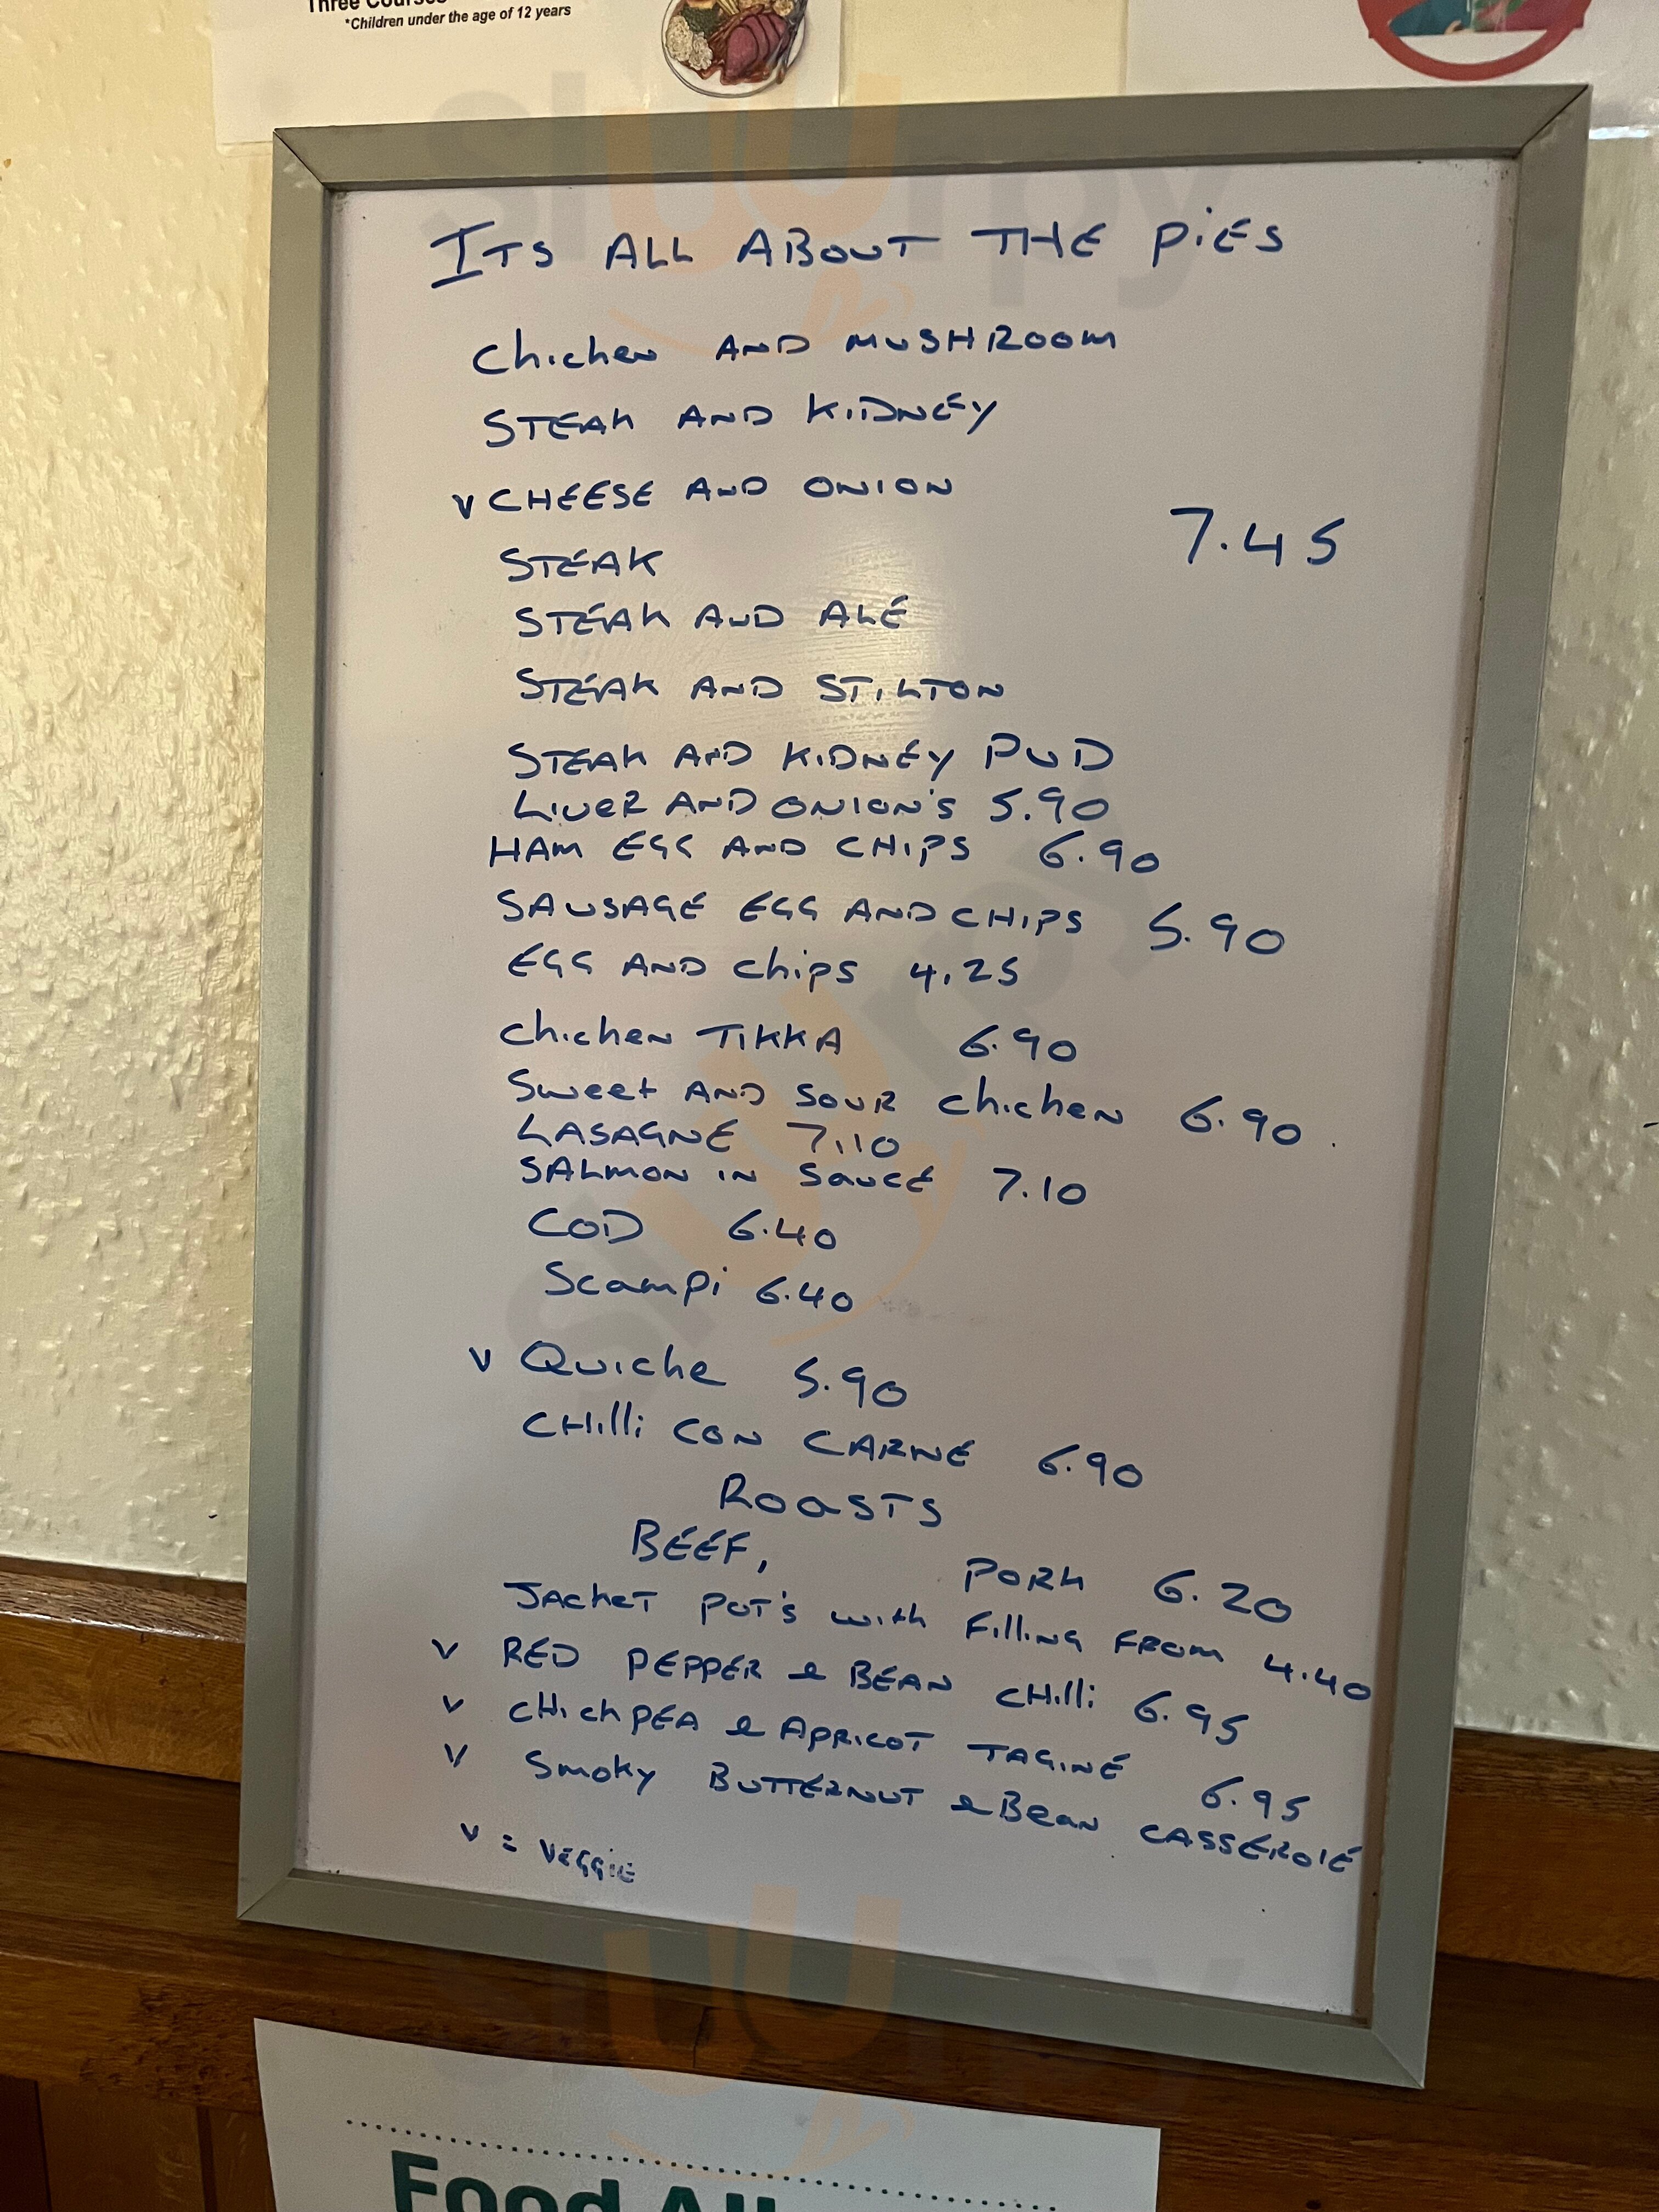 Three Courses
*Children under the age of 12 years
ITS ALL ABOUT THE PiES
Chicken AND MUSHROOM
STEAK AND KIDNEY
V CHEESE AND ONION
7.45
STEAK
STEAK AND ALE
STEAK AND STILTON
STEAK AND KIDNEY PUD
LIVER AND ONION'S 5.90
HAM EGG AND CHIPS 6.90
SAUSAGE EGG AND CHIPS 5.90
EGG AND Chips 4.25
Chicken TIKKA 6.90
Sweet AND SOUR Chicken 6.90
LASAGNE 7.10
SALMON IN SAUCE 7.10
COD 6.40
Scampi 6.40
V Quiche 5.90
CHilli CON CARNE 6.90
ROASTS
BEEF, PORK 6.20
JACKET POT'S with Filling FROM 4.40
V RED PEPPER & BEAN CHilli 6.95
V CHICKPEA & APRICOT TAGINE 6.95
V Smoky BUTTERNUT & BEAN CASSEROLE
V = VEGGIE
Food All
sluurpy
sluurpy
sluurpy